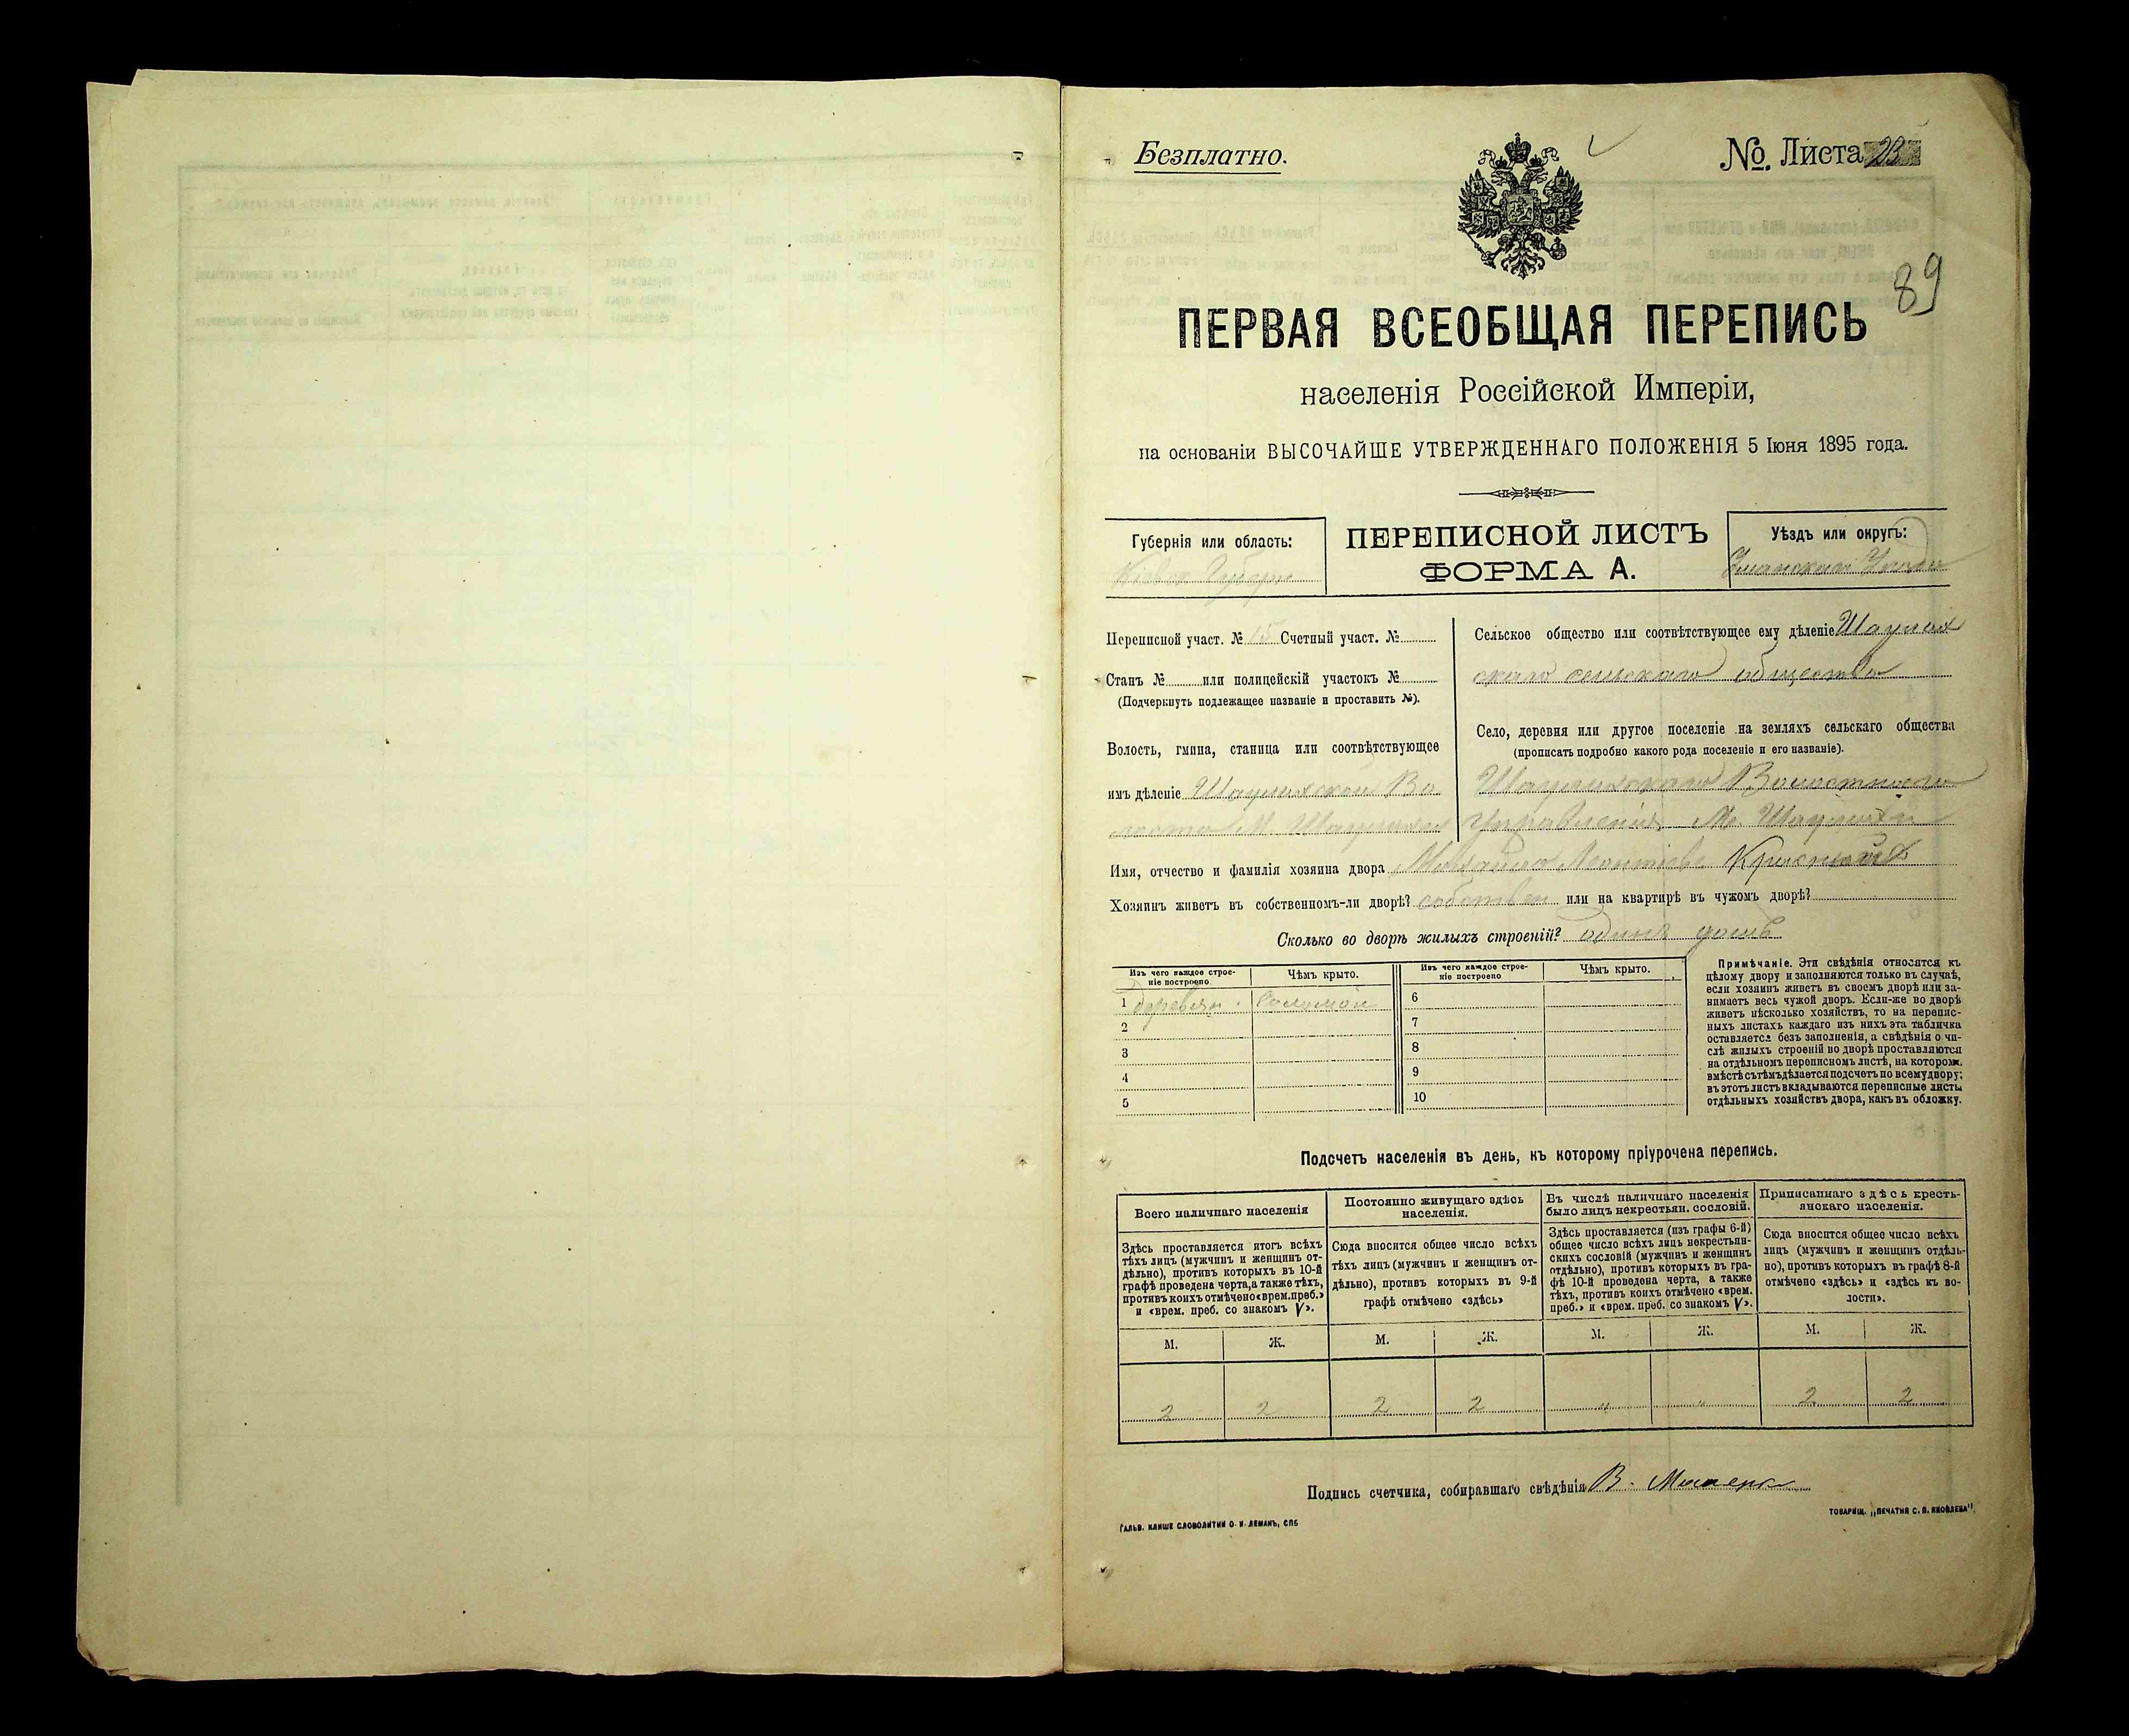 Безплатно.
№ Листа 23
89
ПЕРВАЯ ВСЕОБЩАЯ ПЕРЕПИСЬ
населенія Россійской Имперіи,
на основаніи ВЫСОЧАЙШЕ УТВЕРЖДЕННАГО ПОЛОЖЕНІЯ 5 Іюня 1895 года.
Губернія или область:
ПЕРЕПИСНОЙ ЛИСТЪ
ФОРМА А.
Уѣздъ или округъ:
Переписной участ. № 15 Счетный участ. №
Станъ № или полицейскій участокъ №
(Подчеркнуть подлежащее названіе и проставить №).
Волость, гмина, станица или соотвѣтствующее
имъ дѣленіе
Сельское общество или соотвѣтствующее ему дѣленіе
скаго сельскаго общества
Село, деревня или другое поселеніе на земляхъ сельскаго общества
(прописать подробно какого рода поселеніе и его названіе).
Имя, отчество и фамилія хозяина двора
Хозяинъ живетъ въ собственномъ-ли дворѣ? собствен или на квартирѣ въ чужомъ дворѣ?
Сколько во дворѣ жилыхъ строеній? одинъ домъ
Изъ чего каждое строе-
ніе построено
Чѣмъ крыто.
Изъ чего каждое строе-
ніе построено
Чѣмъ крыто.
1 деревян. Соломой
2
3
4
5
6
7
8
9
10
Примѣчаніе. Эти свѣдѣнія относятся къ
цѣлому двору и заполняются только въ случаѣ,
если хозяинъ живетъ въ своемъ дворѣ или за-
нимаетъ весь чужой дворъ. Если-же во дворѣ
живетъ нѣсколько хозяйствъ, то на перепис-
ныхъ листахъ каждаго изъ нихъ эта табличка
оставляется безъ заполненія, а свѣдѣнія о чи-
слѣ жилыхъ строеній во дворѣ проставляются
на отдѣльномъ переписномъ листѣ, на которомъ
вмѣстѣ съ тѣмъ дѣлается подсчетъ по всему двору;
въ этотъ листъ вкладываются переписные листы
отдѣльныхъ хозяйствъ двора, какъ въ обложку.
Подсчетъ населенія въ день, къ которому пріурочена перепись.
Всего наличнаго населенія
Здѣсь проставляется итогъ всѣхъ
тѣхъ лицъ (мужчинъ и женщинъ от-
дѣльно), противъ которыхъ въ 10-й
графѣ проведена черта, а также тѣхъ,
противъ коихъ отмѣчено «врем. преб.»
и «врем. преб. со знакомъ V».
Постоянно живущаго здѣсь
населенія.
Сюда вносится общее число всѣхъ
тѣхъ лицъ (мужчинъ и женщинъ от-
дѣльно), противъ которыхъ въ 9-й
графѣ отмѣчено «здѣсь»
Въ числѣ наличнаго населенія
было лицъ некрестьян. сословій.
Здѣсь проставляется (изъ графы 6-й)
общее число всѣхъ лицъ некрестьян-
скихъ сословій (мужчинъ и женщинъ
отдѣльно), противъ которыхъ въ гра-
фѣ 10-й проведена черта, а также
тѣхъ, противъ коихъ отмѣчено «врем.
преб.» и «врем. преб. со знакомъ V».
Приписаннаго здѣсь кресть-
янскаго населенія.
Сюда вносится общее число всѣхъ
лицъ (мужчинъ и женщинъ отдѣль-
но), противъ которыхъ въ графѣ 8-й
отмѣчено «здѣсь» и «здѣсь къ во-
лости».
М. Ж. М. Ж. М. Ж. М. Ж.
2 2 2 2 " " 2 2
Подпись счетчика, собиравшаго свѣдѣнія В.
ГАЛЬВ. КЛИШЕ СЛОВОЛИТНИ О. И. ЛЕМАНЪ, СПБ
ТОВАРИЩ. „ПЕЧАТНЯ С. П. ЯКОВЛЕВА"